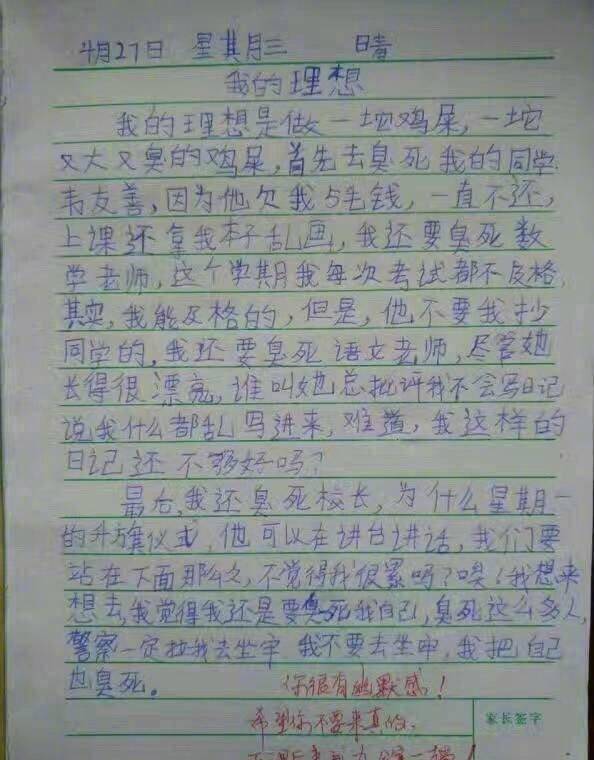 4月27日 星其月三 晴
我的理想
我的理想是做一坨鸡屎,一坨
又大又臭的鸡屎,首先去臭死我的同学
韦友善,因为他欠我5毛钱,一直不还,
上课还拿我本子乱画,我还要臭死数
学老师,这个学期我每次考试都不及格,
其实,我能及格的,但是,他不要我抄
同学的,我还要臭死语文老师,尽管她
长得很漂亮,谁叫她总批评我不会写日记
说我什么都乱写进来,难道,我这样的
日记还不够好吗?
最后,我还臭死校长,为什么星期一
的升旗仪式,他可以在讲台讲话,我们要
站在下面那么久,不觉得我很累吗?唉!我想来
想去,我觉得我还是要臭死我自己,臭死这么多人,
警察一定拉我去坐牢 我不要去坐牢,我把自己
也臭死。
你很有幽默感!
希望你不要来真的,
家长签字